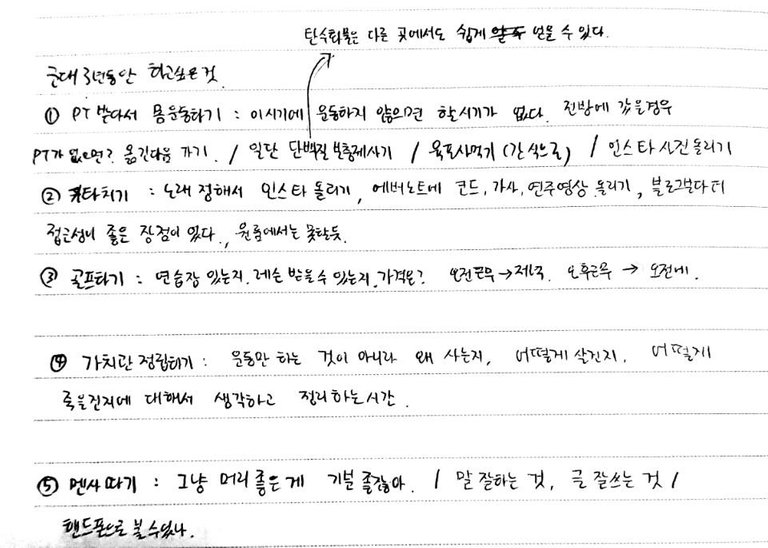 탄수화물은 다른 곳에서도 쉽게 얻을 수 있다.
군대 3년동안 하고싶은 것
① PT 받다서 몸운동하기 : 이시기에 운동하지 않으면 할시기가 없다. 전방에 갔을경우
PT가 없으면? 옮긴다음 가기. / 일단 단백질 보충제사기 / 육포사먹기(간식으로) / 인스타 사진 올리기
② 기타치기 : 노래 정해서 인스타 올리기, 에버노트에 코드, 가사, 연주영상 올리기, 블로그보다 더
접근성이 좋은 장점이 있다., 원룸에서는 못할듯.
③ 골프타기 : 연습장 있는지, 레슨 받을수 있는지, 가격은? 오전근무 → 저녁. 오후근무 → 오전에.
④ 가치관 정립하기 : 운동만 하는 것이 아니라 왜 사는지, 어떻게 살건지, 어떻게
죽을건지에 대해서 생각하고 정리하는시간.
⑤ 멘사따기 : 그냥 머리 좋은게 기분 좋잖아. / 말 잘하는 것, 글 잘쓰는 것 /
핸드폰으로 볼 수있나.